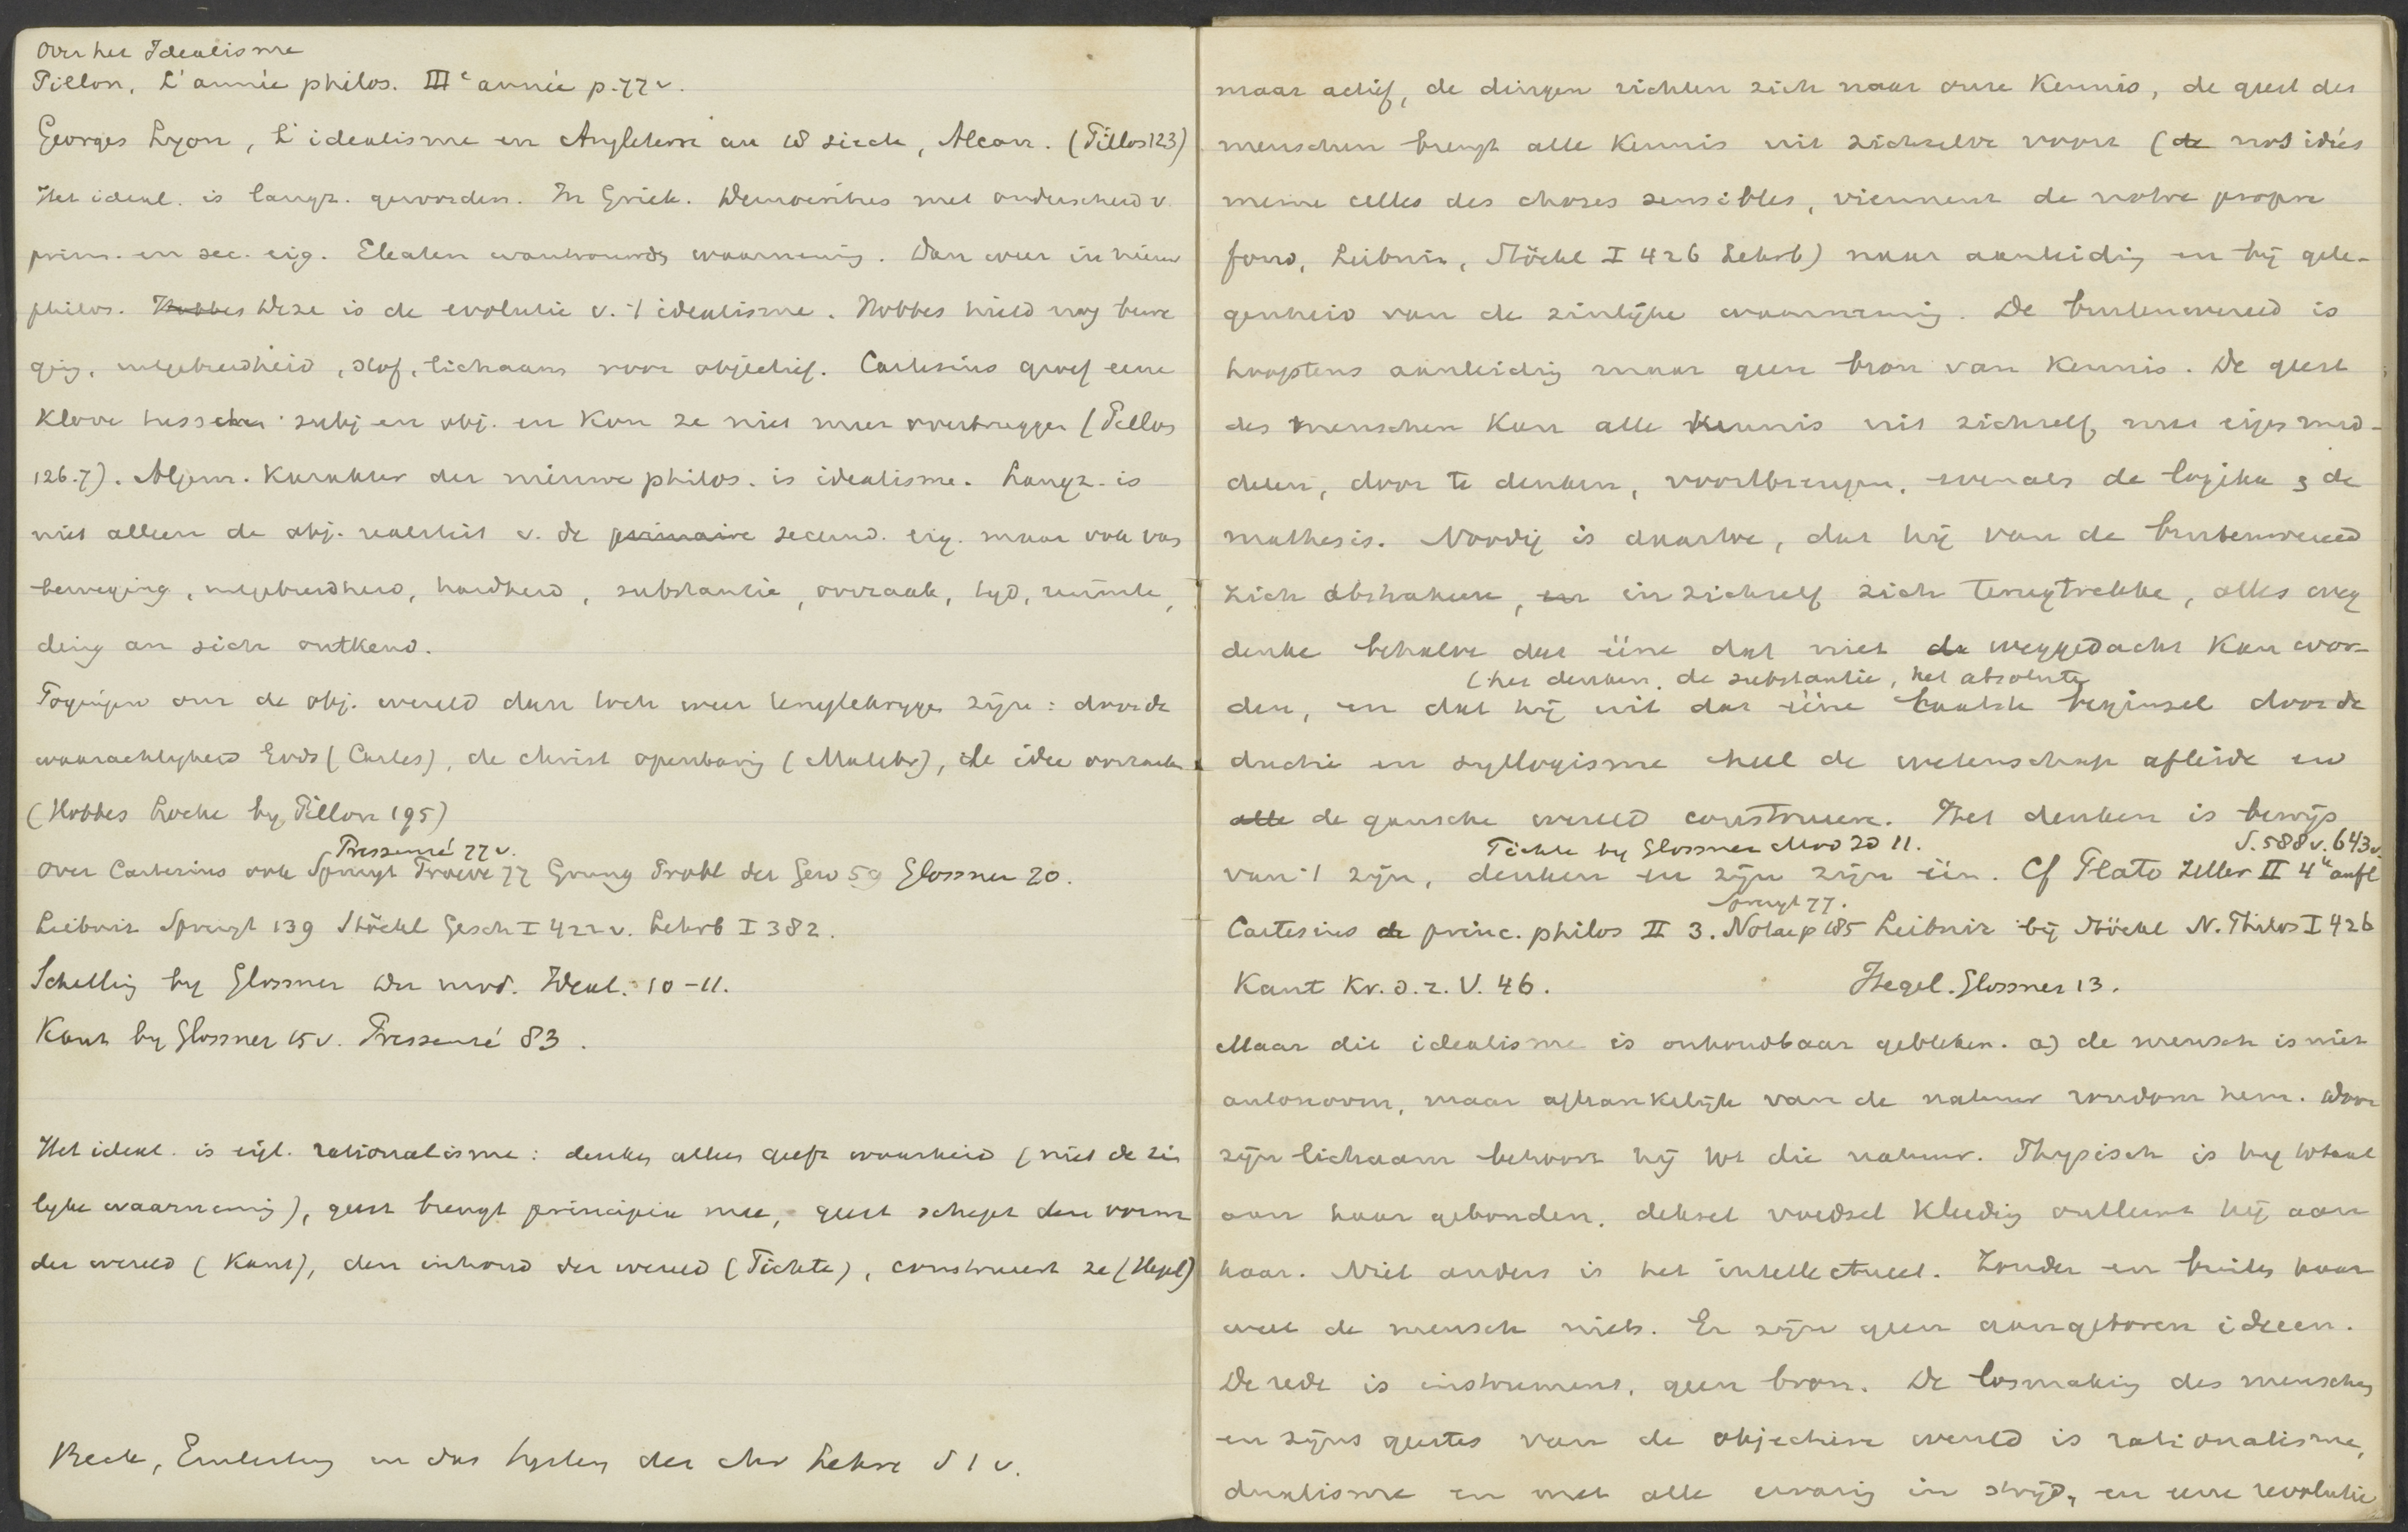 Over het Idealisme
Pillon, L'année philos. IIIe année p. 77 v.
Georges Lyon, L'idealisme en Angleterre au 18 siecle, Alcan. (Pillon 123)
Het ideal. is langz. geworden. In Griek. Democritus met onderscheid v.
prim. en sec. eig. Eleaten wantrouwds waarneming. Dan weer in nieuw
philos. Hobbes Deze is de evolutie v. 't idealisme. Hobbes hield nog bewe
ging, uitgebreidheid, stof, lichaam voor objectief. Cartesius groef eene
Klove tusschen subj en obj. en Kon ze niet meer overbruggen (Pillon
126.7). Algem. Karakter der nieuwe philos. is idealisme. Langz. is
niet alleen de obj. realiteit v. de primaire secund. eig. maar ook van
beweging, uitgebreidheid, hardheid, substantie, oorzaak, tyd, ruimte,
ding an sich ontkend.
Pogingen om de obj. wereld dan toch weer terugtekrygen zijn: door de
waarachtigheid Gods (Cartes), de christ openbaring (Malebr), de idee oorzaak
(Hobbes Locke by Pillon 195)
Pressensé 77 v.
Over Cartesius ook Spruyt Proeve 77 Grung Probl der Gew 59 Glossner 20.
Leibniz Spruyt 139 Stöckl Gesch I 422 v. Lehrb I 382.
Schelling by Glossner Der mod. Ideal. 10-11.
Kant by Glossner 15 v. Pressensé 83.
Het ideal. is eigl. rationalisme: denken alleen geeft waarheid (niet de zin
lyke waarneming), geest brengt principien mee, geest schept den vorm
der wereld (Kant), den inhoud der wereld (Fichte), construeert ze (Hegel)
Beck, Einleitung in das System der chr Lehre S 1 v.
maar actief, de dingen richten zich naar onze Kennis, de geest des
menschen brengt alle Kennis uit zichzelve voort (de nos idées
meme celles des choses sensibles, viennent de notre propre
fond, Leibniz, Stöckl I 426 Lehrb) naar aanleiding en bij gele-
genheid van de zinlijke waarneming. De buitenwereld is
hoogstens aanleiding maar geen bron van Kennis. De geest
des menschen Kan alle Kennis uit zichzelf, met eigen mid-
delen, door te denken, voortbrengen, evenals de logika & de
mathesis. Noodig is daartoe, dat hij van de buitenwereld
zich abstrahere, en in zichzelf zich terugtrekke, alles weg
denke behalve dat ééne dat niet de weggedacht Kan wor-
(het denken, de substantie, het absolute
den, en dat hij uit dat ééne laatste beginsel door de
ductie en syllogisme heel de wetenschap afleide en
alle de gansche wereld construeere. Het denken is bewijs
Fichte by Glossner Mod 20 11. S. 588 v. 643 v.
van 't zijn, denken en zijn zijn één. Cf Plato Zeller II 4e aufl
Spruyt 77.
Cartesius de princ. philos II 3. Notae p 185 Leibniz bij Stöckl N. Philos I 426
Kant Kr. d. r. V. 46. Hegel. Glossner 13.
Maar dit idealisme is onhoudbaar gebleken. a) de mensch is niet
autonoom, maar afhankelijk van de natuur rondom hem. Door
zijn lichaam behoort hij tot die natuur. Physisch is hy totaal
aan haar gebonden. deksel voedsel Kleeding ontleent hij aan
haar. Niet anders is het intellectueel. Zonder en buiten haar
weet de mensch niets. Er zijn geen aangeboren ideeen.
De rede is instrument, geen bron. De losmaking des menschen
en zijns geestes van de objectieve wereld is rationalisme,
dualisme en met alle ervaring in strijd, en eene revolutie